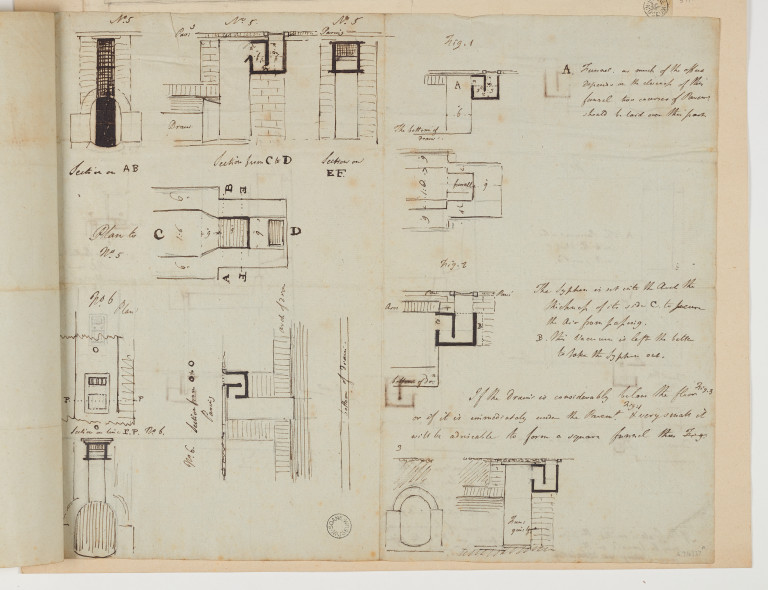 No 5
No 5
No 5
Pav.t
Pav.t
Drain
Section on AB
Section from C to D
Section on
EF
Plan to
No. 5
C
D
B
E
A
E
6
1.6
9
9
6
No 6
Plan
O
P
P
O
Section on line P.P. No 6.
No. 6 Section from O to O
Pav.t
end of Drain
bottom of Drain
Fig. 1
A
6
The bottom of
Drain
funnell
9
A Funnel, as much of the effect
depends on the closeness of this
funnel two courses of Pavement
should be laid over this part
Fig. 2
Pav.t
Pav.t
B
bottom of Dr.n
The Syphon is set into the and the
thickness of its side C. to prevent
the Air from passing.
B. this Vacuum is left the better
to take the Syphon out.
If the Drain is considerably below the floor Fig. 3
or if it is immediately under the Pavement Fig. 1 & very small it
will be adviseable to form a square funnel thus Fig.
3